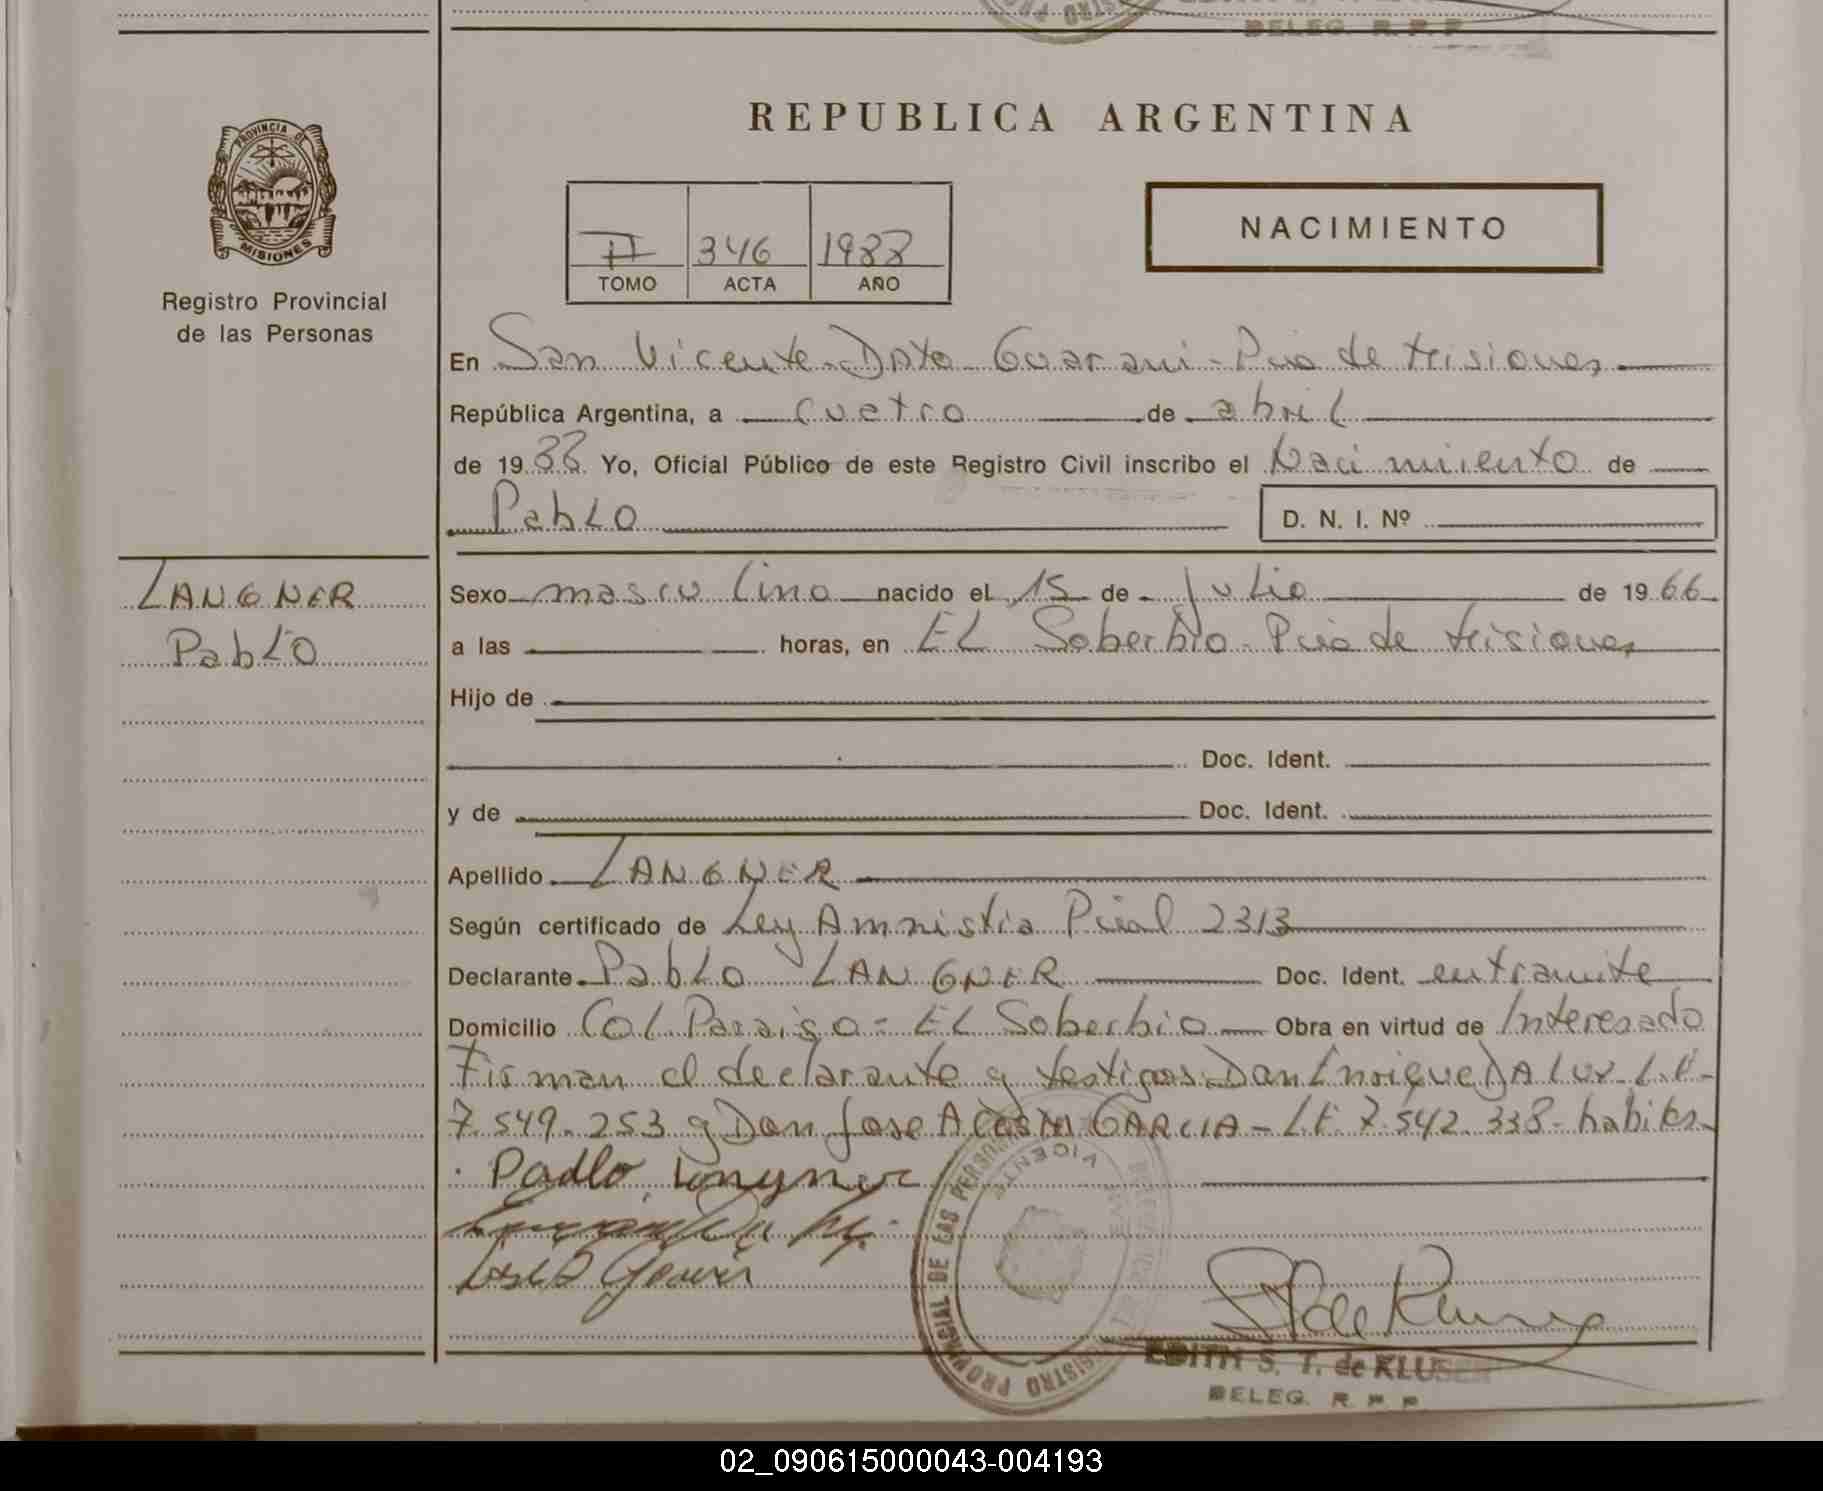 DELEG. R. P. P
PROVINCIA DE
MISIONES
Registro Provincial
de las Personas
LANGNER
Pablo
REPUBLICA ARGENTINA
II 346 1988
TOMO ACTA AÑO
NACIMIENTO
En San Vicente - Dpto Guarani - Pcia de Misiones
República Argentina, a cuatro de abril
de 1988 Yo, Oficial Público de este Registro Civil inscribo el Nacimiento de
Pablo D. N. I. Nº
Sexo masculino nacido el 15 de Julio de 1966
a las horas, en EL Soberbio - Pcia de Misiones
Hijo de
Doc. Ident.
y de Doc. Ident.
Apellido LANGNER
Según certificado de Ley Amnistia Pcial 2313
Declarante Pablo LANGNER Doc. Ident. en tramite
Domicilio Col Paraiso - EL Soberbio Obra en virtud de Interesado
Firman el declarante y testigos Don Enrique DA LUZ - L.E-
7.549.253 y Don Jose GARCIA - L.E 7.542.338 - habiles
Pablo Langner
REGISTRO PROVINCIAL DE LAS PERSONAS
VICENTE
EDITH S. T. de KLUSER
DELEG. R. P. P
02_090615000043-004193